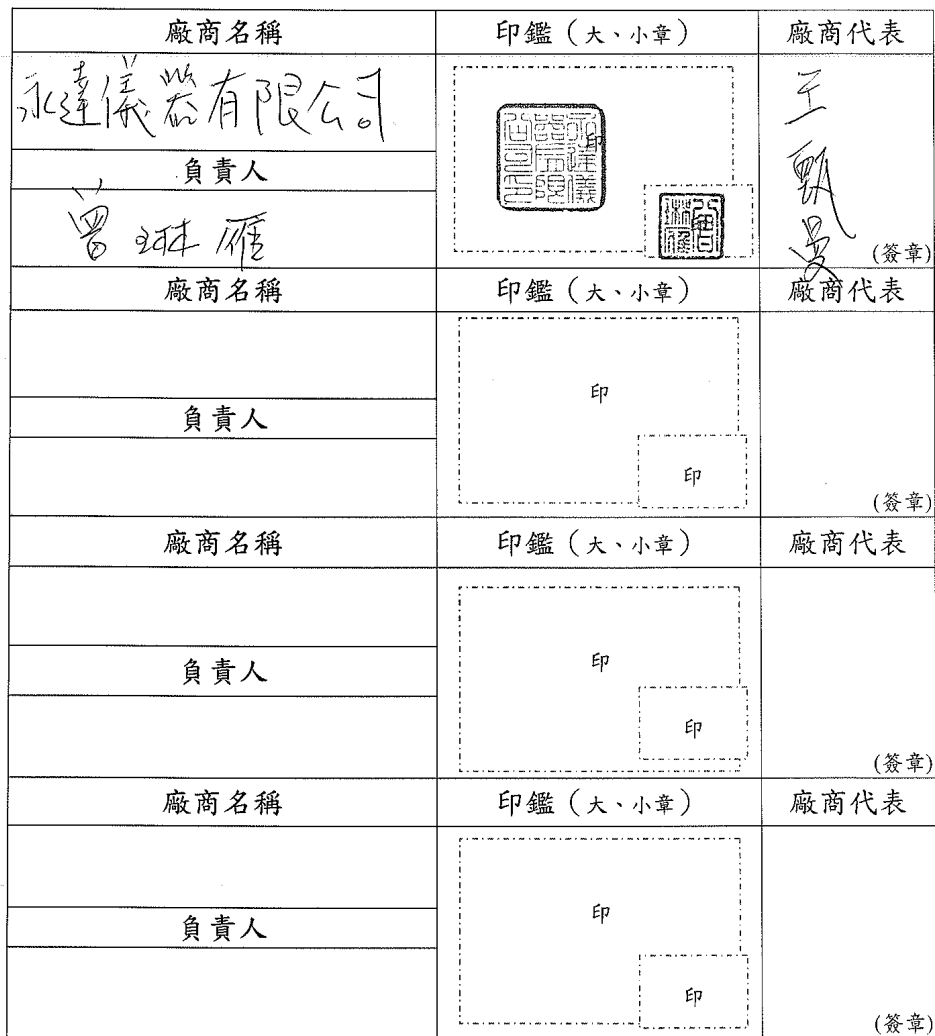 廠商名稱 印鑑（大、小章） 廠商代表
永達儀器有限公司
印
負責人
曾琳雁
王甄曼
(簽章)
廠商名稱 印鑑（大、小章） 廠商代表
印
負責人
印
(簽章)
廠商名稱 印鑑（大、小章） 廠商代表
印
負責人
印
(簽章)
廠商名稱 印鑑（大、小章） 廠商代表
印
負責人
印
(簽章)